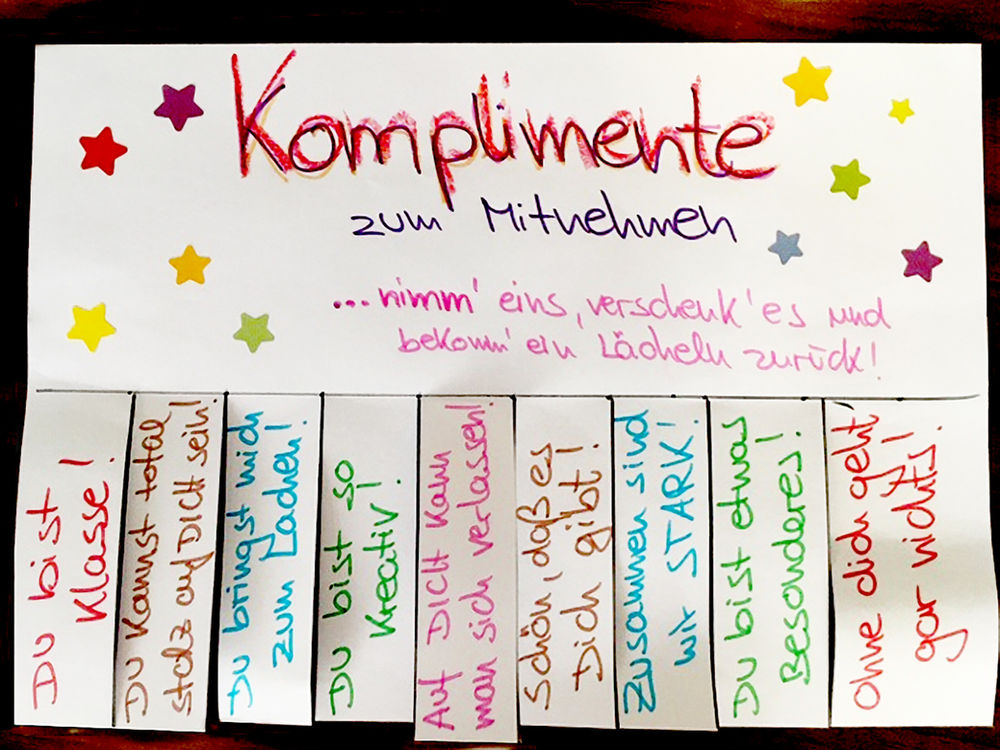 Komplimente
zum Mitnehmen
...nimm' eins, verschenk' es und
bekomm' ein Lächeln zurück!
DU bist
Klasse!
DU kannst total
stolz auf DICH sein!
DU bringst mich
zum Lachen!
DU bist so
kreativ!
Auf DICH kann
man sich verlassen!
Schön, daß es
Dich gibt!
Zusammen sind
wir STARK!
DU bist etwas
Besonderes!
Ohne dich geht'
gar nichts!